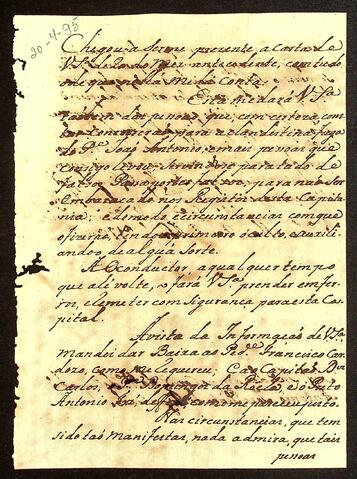 20-4-95
Chegou a Serme prezente a Carta de
VS.ª de 20 do Mez antecedente, com tudo
o que nella me dá Conta.
Esta me dará VS.ª
tambem das pessoas, que com certeza
concorrerão para a clandestina fuga
do P.e Joze Antonio, e mais pessoas que
comsigo levou, servindose para tudo de
falsos Passaportes, para não ser
Embaraçado nos Registos desta Capita
nia; e do modo e circunstancias com que
o fizerão, tendo primeiro occulto, auxili
ando, de alguã sorte.
Ao Conductor, a qualquer tempo
que ali volte, o fará VS.ª prender em fer
ros, e remeter com Sigurança para esta Ca
pital.
Avista da Informaçaõ de VS.ª
mandei dar Baixa ao Francisco Car
dozo, como me requereu; e ao Capitaõ
Carlos, Domingos da e o Preto
Antonio como me pareceu justo.
Nas circunstancias, que tem
sido taõ manifestas, nada admira, que tais
pessoas